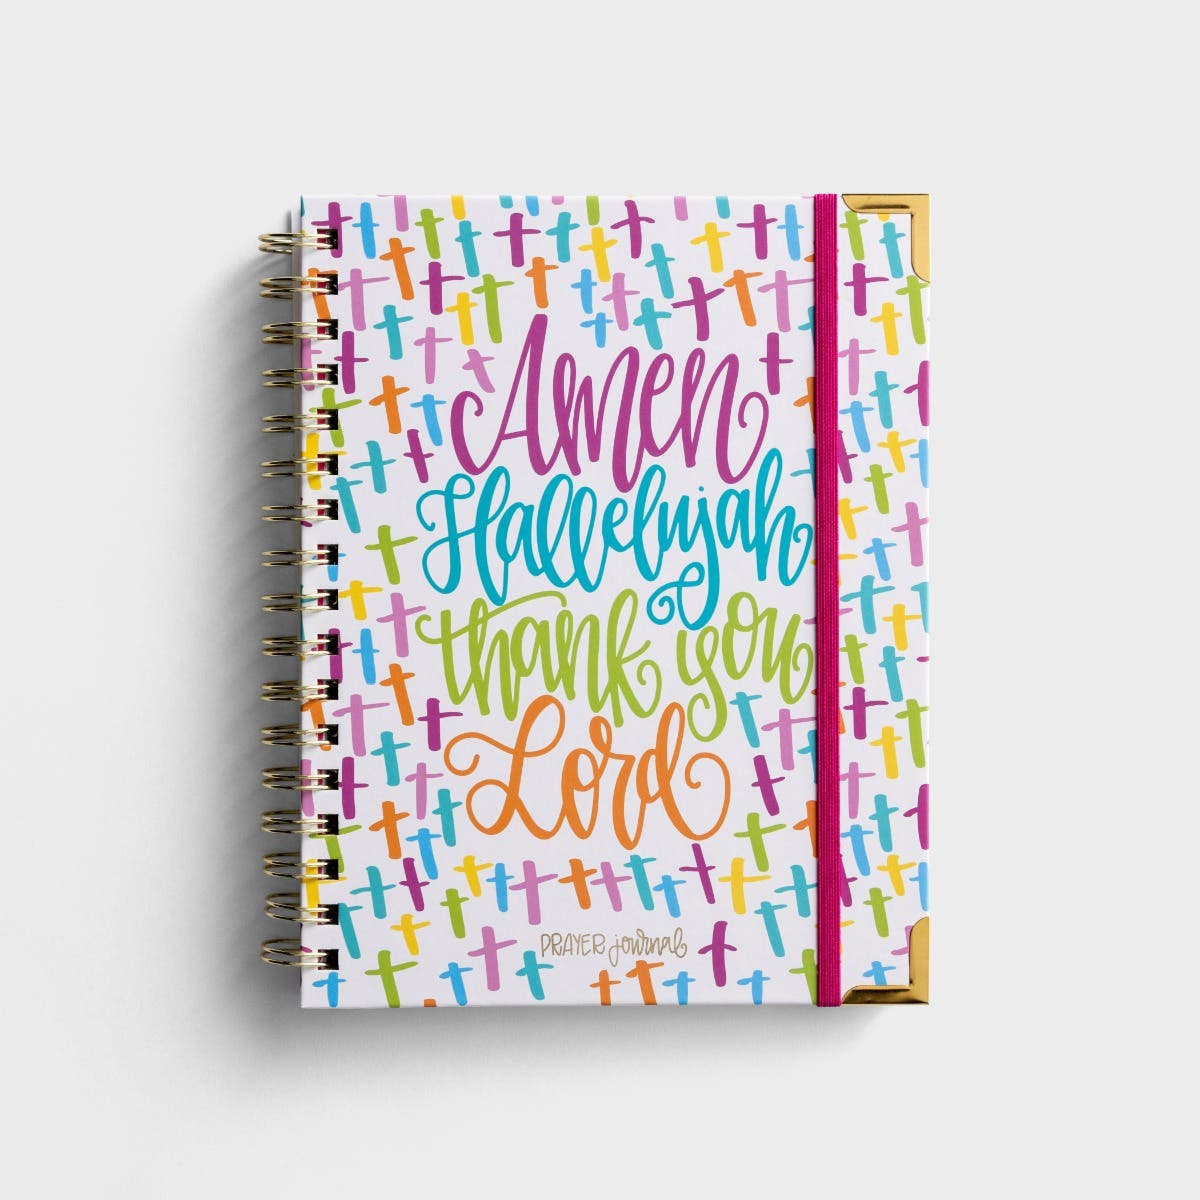 Amen
Hallelujah
thank you
Lord
PRAYER journal